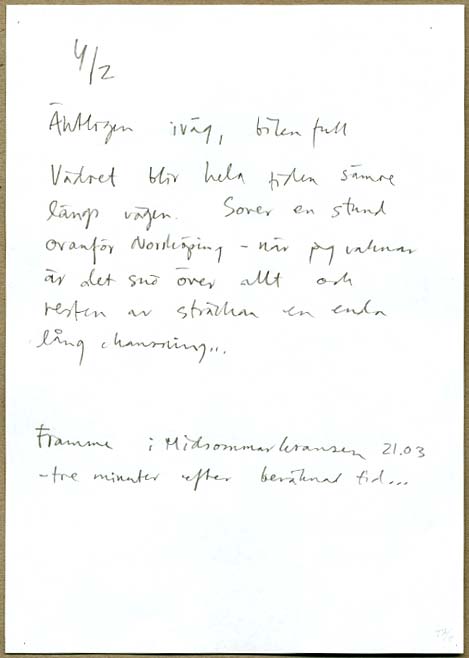 4/2
Äntligen iväg, bilen full
Vädret blir hela tiden sämre
längs vägen. Sover en stund
ovanför Norrköping - när jag vaknar
är det snö över allt och
resten av sträckan en enda
lång chansning...
Framme i Midsommarkransen 21.03
- tre minuter efter beräknad tid...